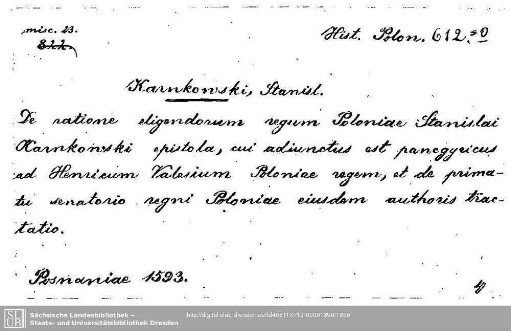 misc. 23.
Hist. Polon. 612.
Karnkowski, Stanisl.
De ratione eligendorum regum Poloniae Stanislai
Karnkowski epistola, cui adiunctus est panegyricus
ad Henricum Valesium Poloniae regem, et de prima-
tu senatorio regni Poloniae eiusdem authoris trac-
tatio.
Posnaniae 1593.
SLUB
Sächsische Landesbibliothek –
Staats- und Universitätsbibliothek Dresden